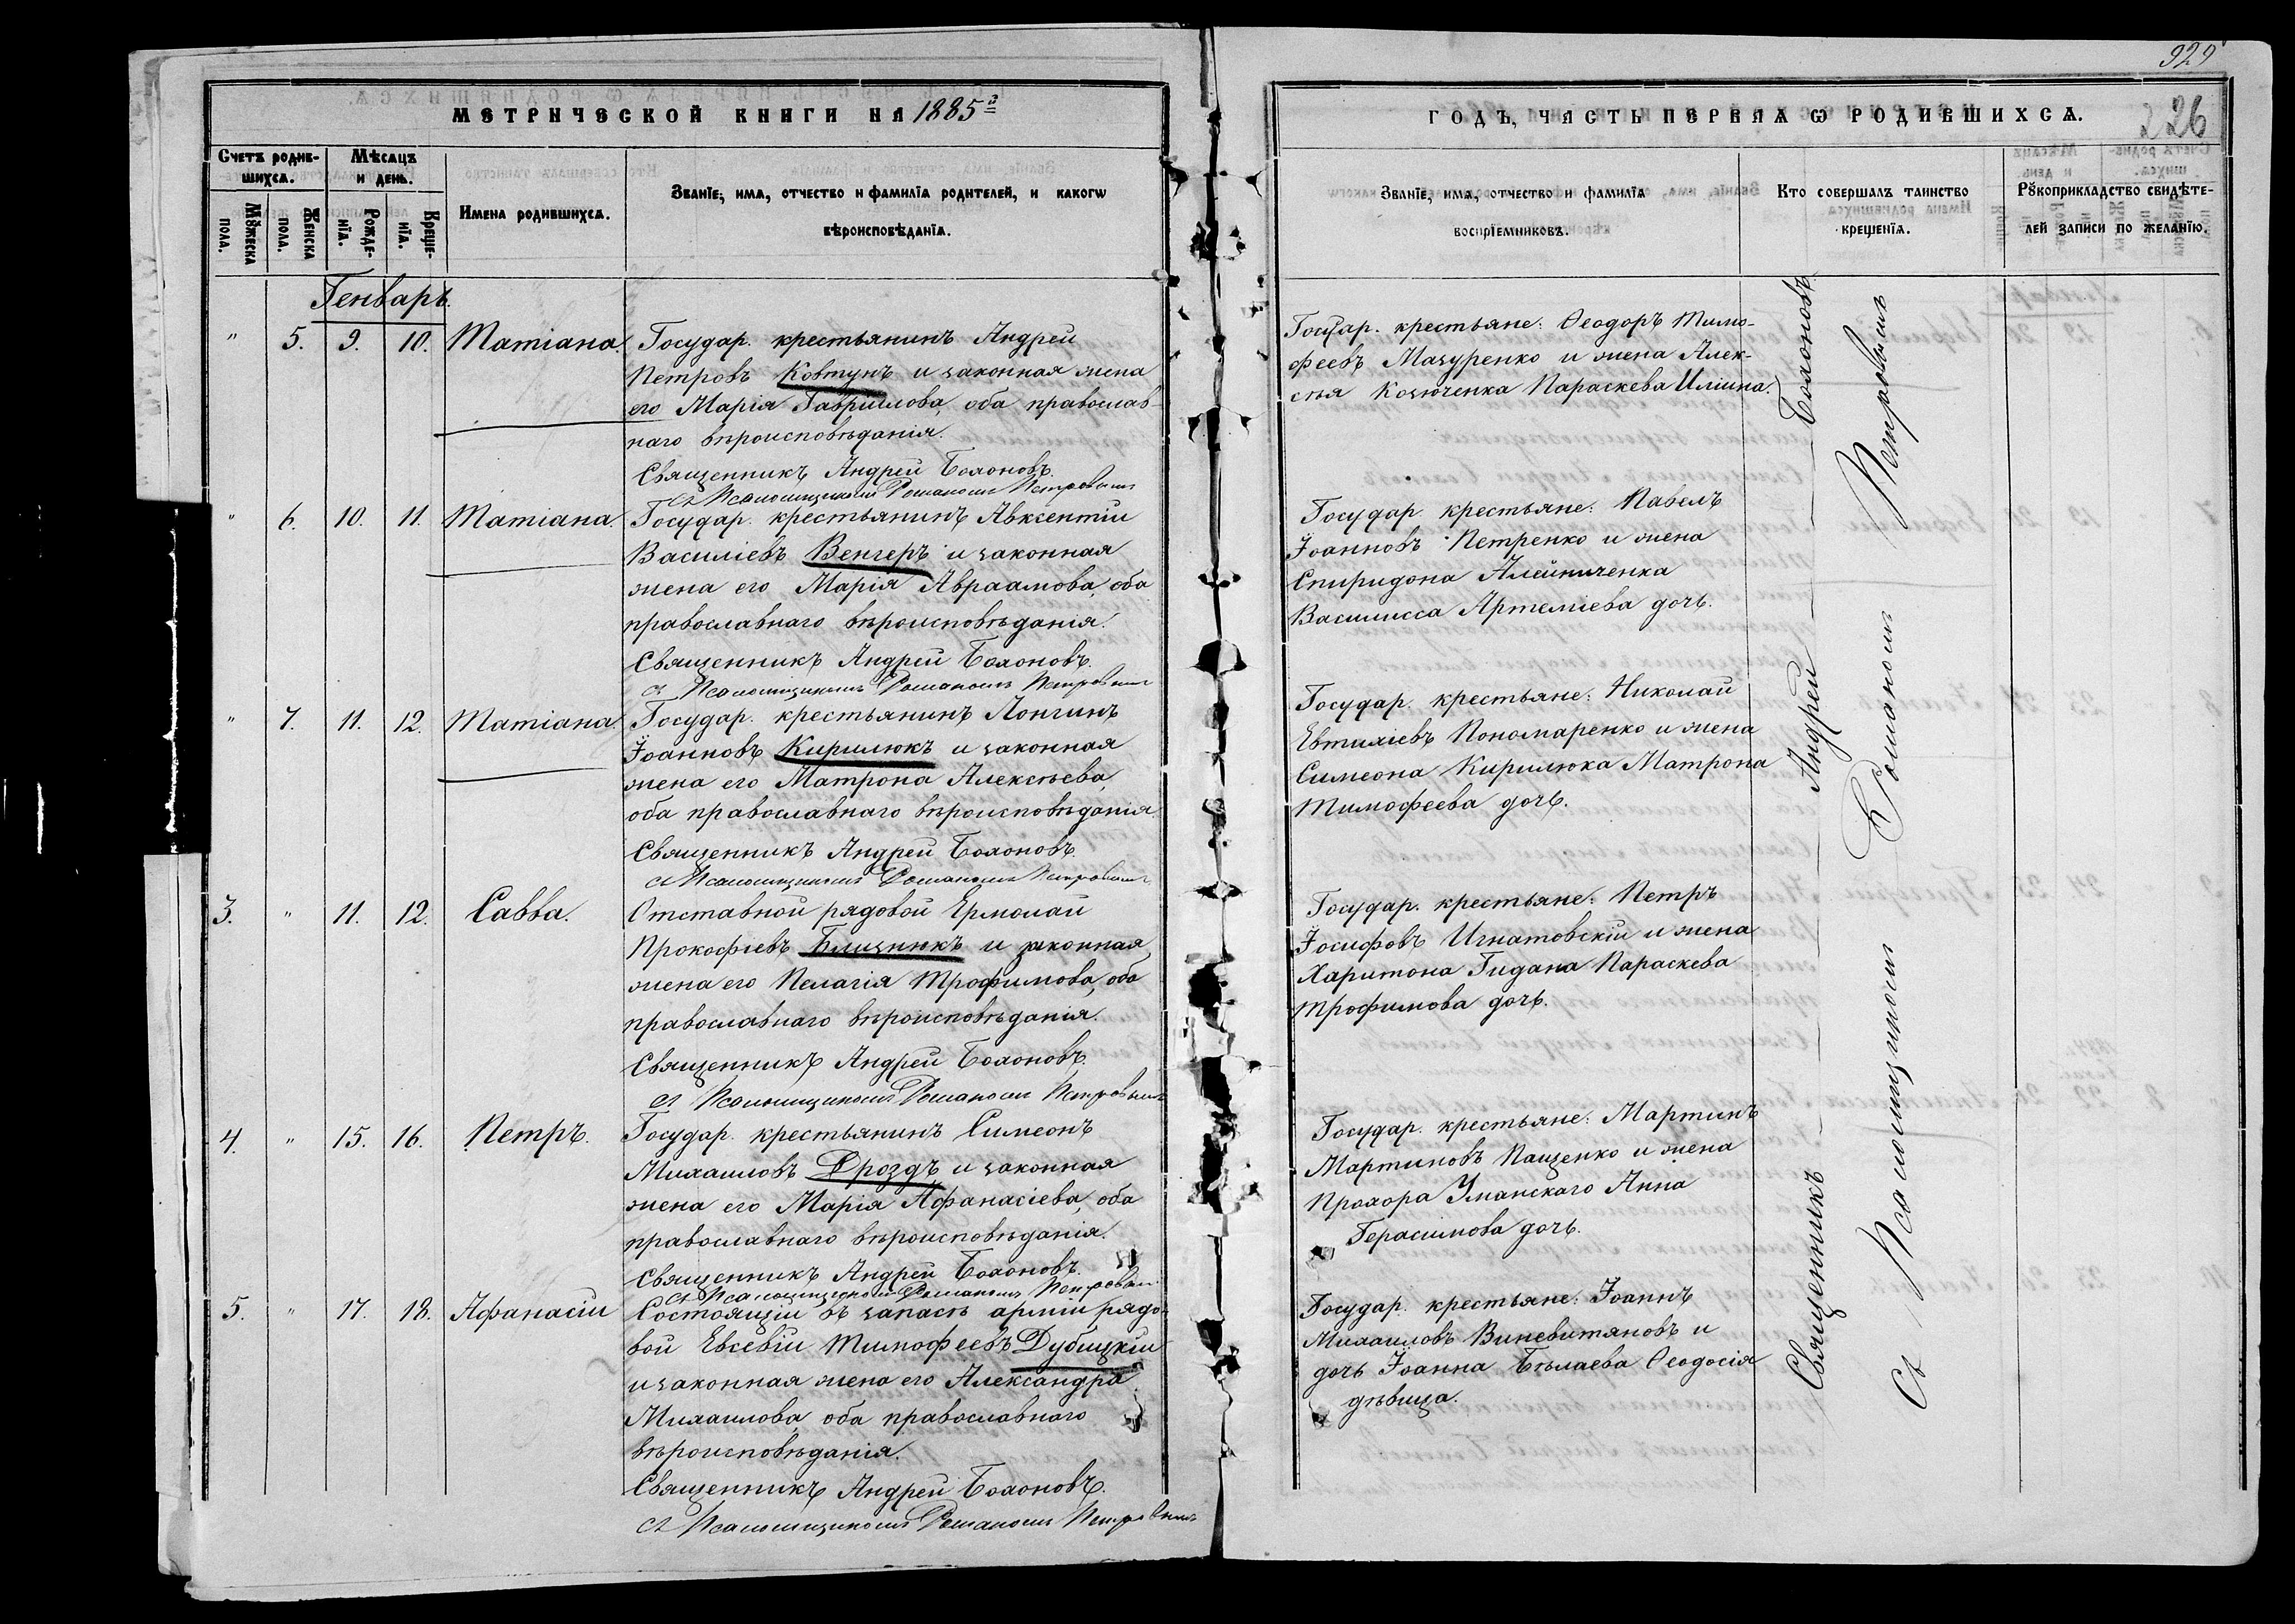 929
МЕТРИЧЕСКОЙ КНИГИ НА 1885й
Счетъ родив-
шихсѧ.
Мѣсѧцъ
и день.
Имена родившихсѧ.
Званїе, имѧ, отчество и фамилїа родителей, и какогѡ
вѣроисповѣданїѧ.
Мꙋжеска
пола.
Женска
пола.
Рожде-
нїѧ.
Креще-
нїѧ.
Генварь.
" 5. 9. 10. Татіана.
Государ. крестьянинъ Андрей
Петровъ Ковтунъ и законная жена
его Марія Гавриилова, оба православ-
наго вѣроисповѣданія.
Священникъ Андрей Бохоновъ.
съ Псаломщикомъ Романомъ Петровымъ
" 6. 10. 11. Татіана.
Государ. крестьянинъ Авксентій
Василіевъ Венгеръ и законная
жена его Марія Авраамова, оба
православнаго вѣроисповѣданія.
Священникъ Андрей Бохоновъ.
съ Псаломщикомъ Романомъ Петровымъ
" 7. 11. 12. Татіана.
Государ. крестьянинъ Лонгинъ
Іоанновъ Кирилюкъ и законная
жена его Матрона Алексѣева,
оба православнаго вѣроисповѣданія.
Священникъ Андрей Бохоновъ.
съ Псаломщикомъ Романомъ Петровымъ
3. " 11. 12. Савва.
Отставной рядовой Ермолай
Прокофіевъ Близнюкъ и законная
жена его Пелагія Трофимова, оба
православнаго вѣроисповѣданія.
Священникъ Андрей Бохоновъ.
съ Псаломщикомъ Романомъ Петровымъ
4. " 15. 16. Петръ.
Государ. крестьянинъ Симеонъ
Михаиловъ Дроздъ и законная
жена его Марія Афанасіева, оба
православнаго вѣроисповѣданія.
Священникъ Андрей Бохоновъ.
съ Псаломщикомъ Романомъ Петровымъ
5. " 17. 18. Афанасій
Состоящій въ запасѣ арміи рядо-
вой Евсевій Тимофеевъ Дубицкій
и законная жена его Александра
Михаилова, оба православнаго
вѣроисповѣданія.
Священникъ Андрей Бохоновъ.
съ Псаломщикомъ Романомъ Петровымъ
ГОДЪ, ЧАСТЬ ПЕРВАѦ Ѡ РОДИВШИХСѦ.
226
Званїе, имѧ, отчество и фамилїа
воспрїемниковъ.
Кто совершалъ таинство
крещенїѧ.
Рꙋкоприкладство свидѣте-
лей записи по желанїю.
Государ. крестьяне: Ѳеодоръ Тимо-
феевъ Мазуренко и жена Алек-
сѣя Козюченка Параскева Иліина.
Государ. крестьяне: Павелъ
Іоанновъ Петренко и жена
Спиридона Алейниченка
Василисса Артеміева дочь.
Государ. крестьяне: Николай
Евтихіевъ Пономаренко и жена
Симеона Кирилюка Матрона
Тимофеева дочь.
Государ. крестьяне: Петръ
Іосифовъ Игнатовскій и жена
Харитона Гидана Параскева
Трофимова дочь.
Государ. крестьяне: Мартинъ
Мартиновъ Пащенко и жена
Прохора Уманскаго Анна
Герасимова дочь.
Государ. крестьяне: Іоаннъ
Михаиловъ Виневитяновъ и
дочь Іоанна Бѣлаева Ѳеодосія
дѣвица.
Священникъ Андрей Бохоновъ
съ Псаломщикомъ Романомъ Петровымъ